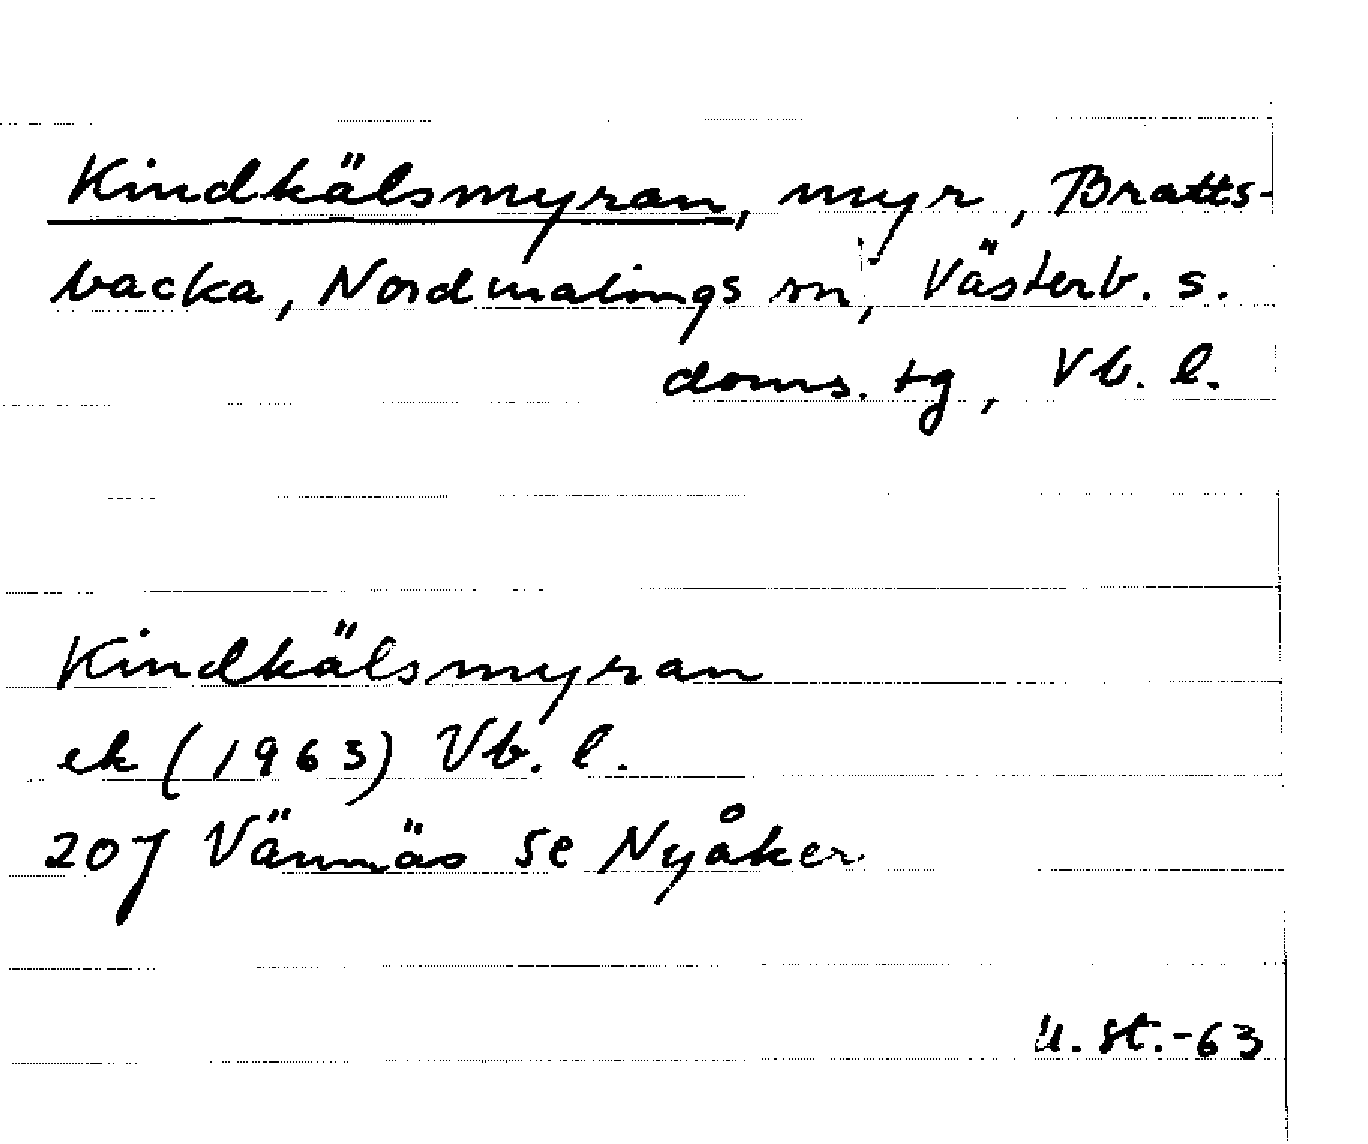 Kindkälsmyran, myr, Bratts-
backa, Nordmalings sn, Västerb. s.
doms. tg, Vb. l.
Kindkälsmyran
ek (1963) Vb. l.
20J Vännäs SE Nyåker
U. St. -63